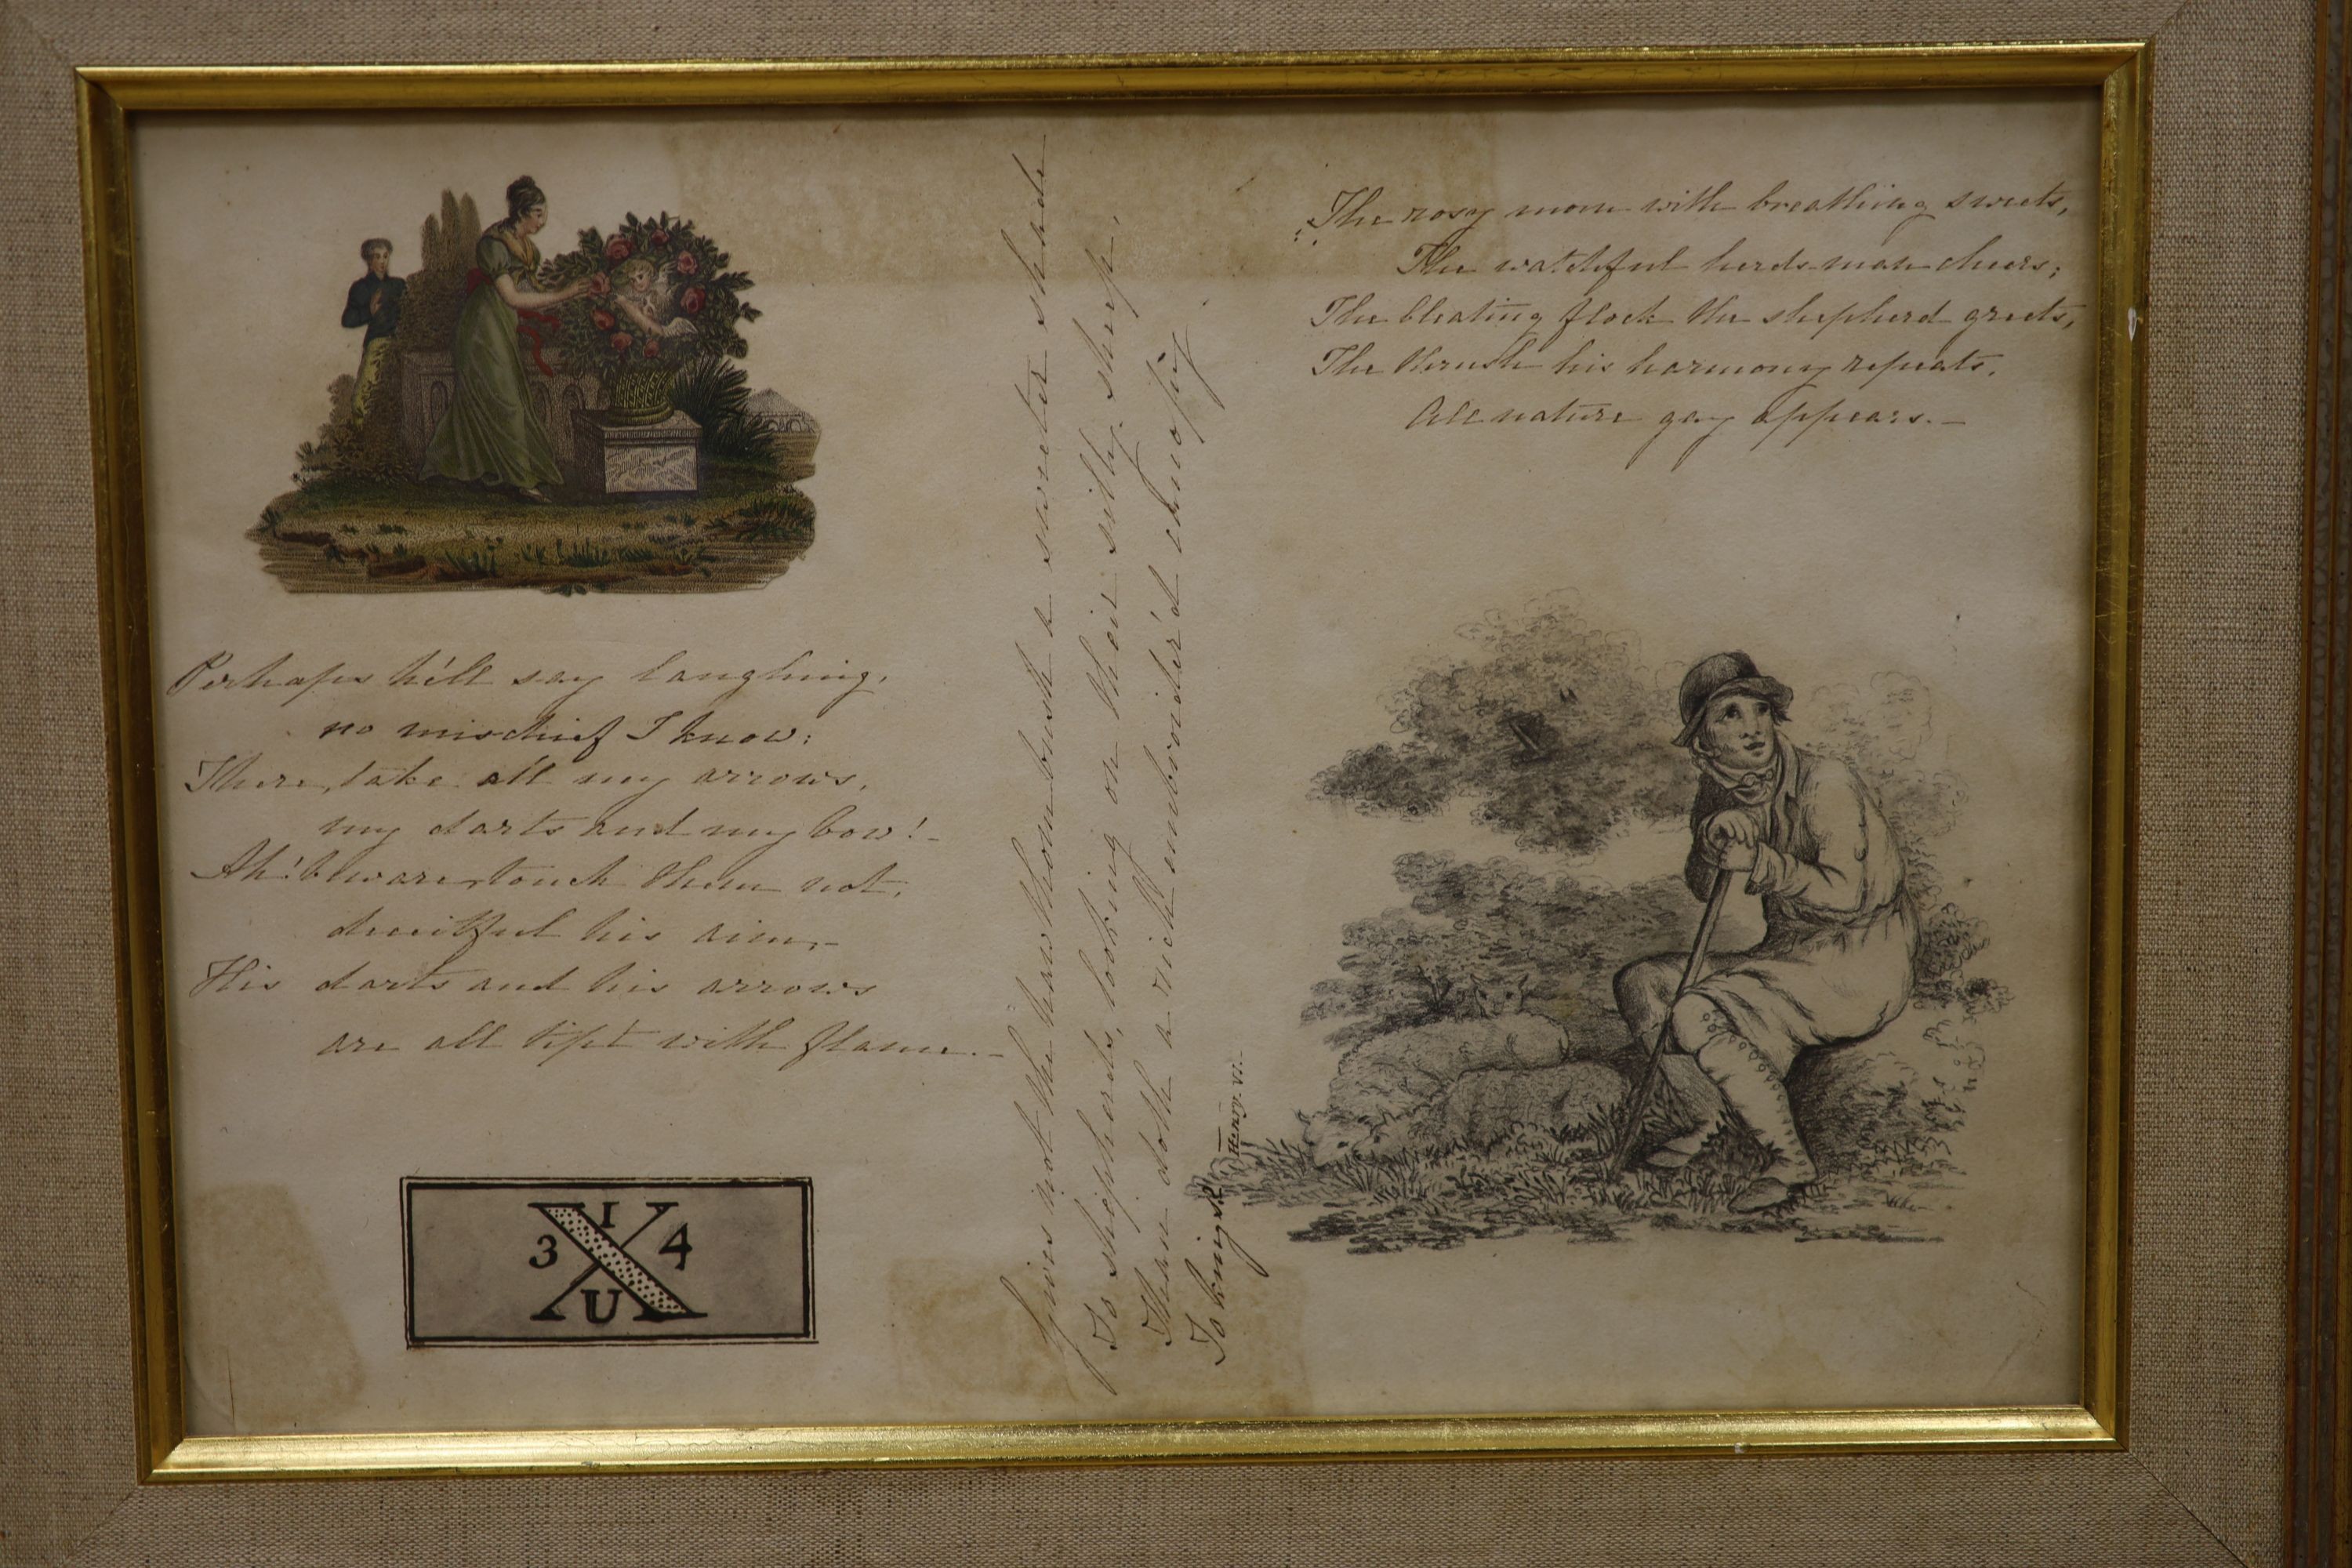 Perhaps he'll say laughing,
no mischief I know:
There, take all my arrows,
my darts and my bow!-
Ah! beware, touch them not,
deceitful his aim,-
His darts and his arrows
are all tipt with flame.-
1
3 X 4
U
Gives not the hawthorn bush a sweeter shade
To shepherds, looking on their silly sheep,
Than doth a rich embroider'd canopy
To kings &c.
Henry. VI.
The rosy morn with breathing sweets,
The watchful herds-man cheers;
The bleating flock the shepherd greets,
The thrush his harmony repeats.
All nature gay appears.-